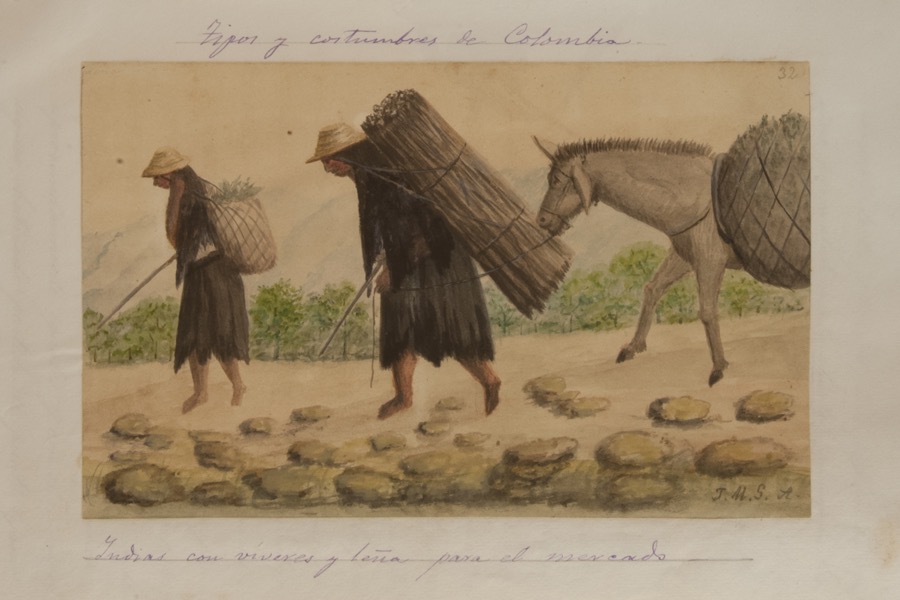 Tipos y costumbres de Colombia
32
J. M. G. A.
Indias con víveres y leña para el mercado